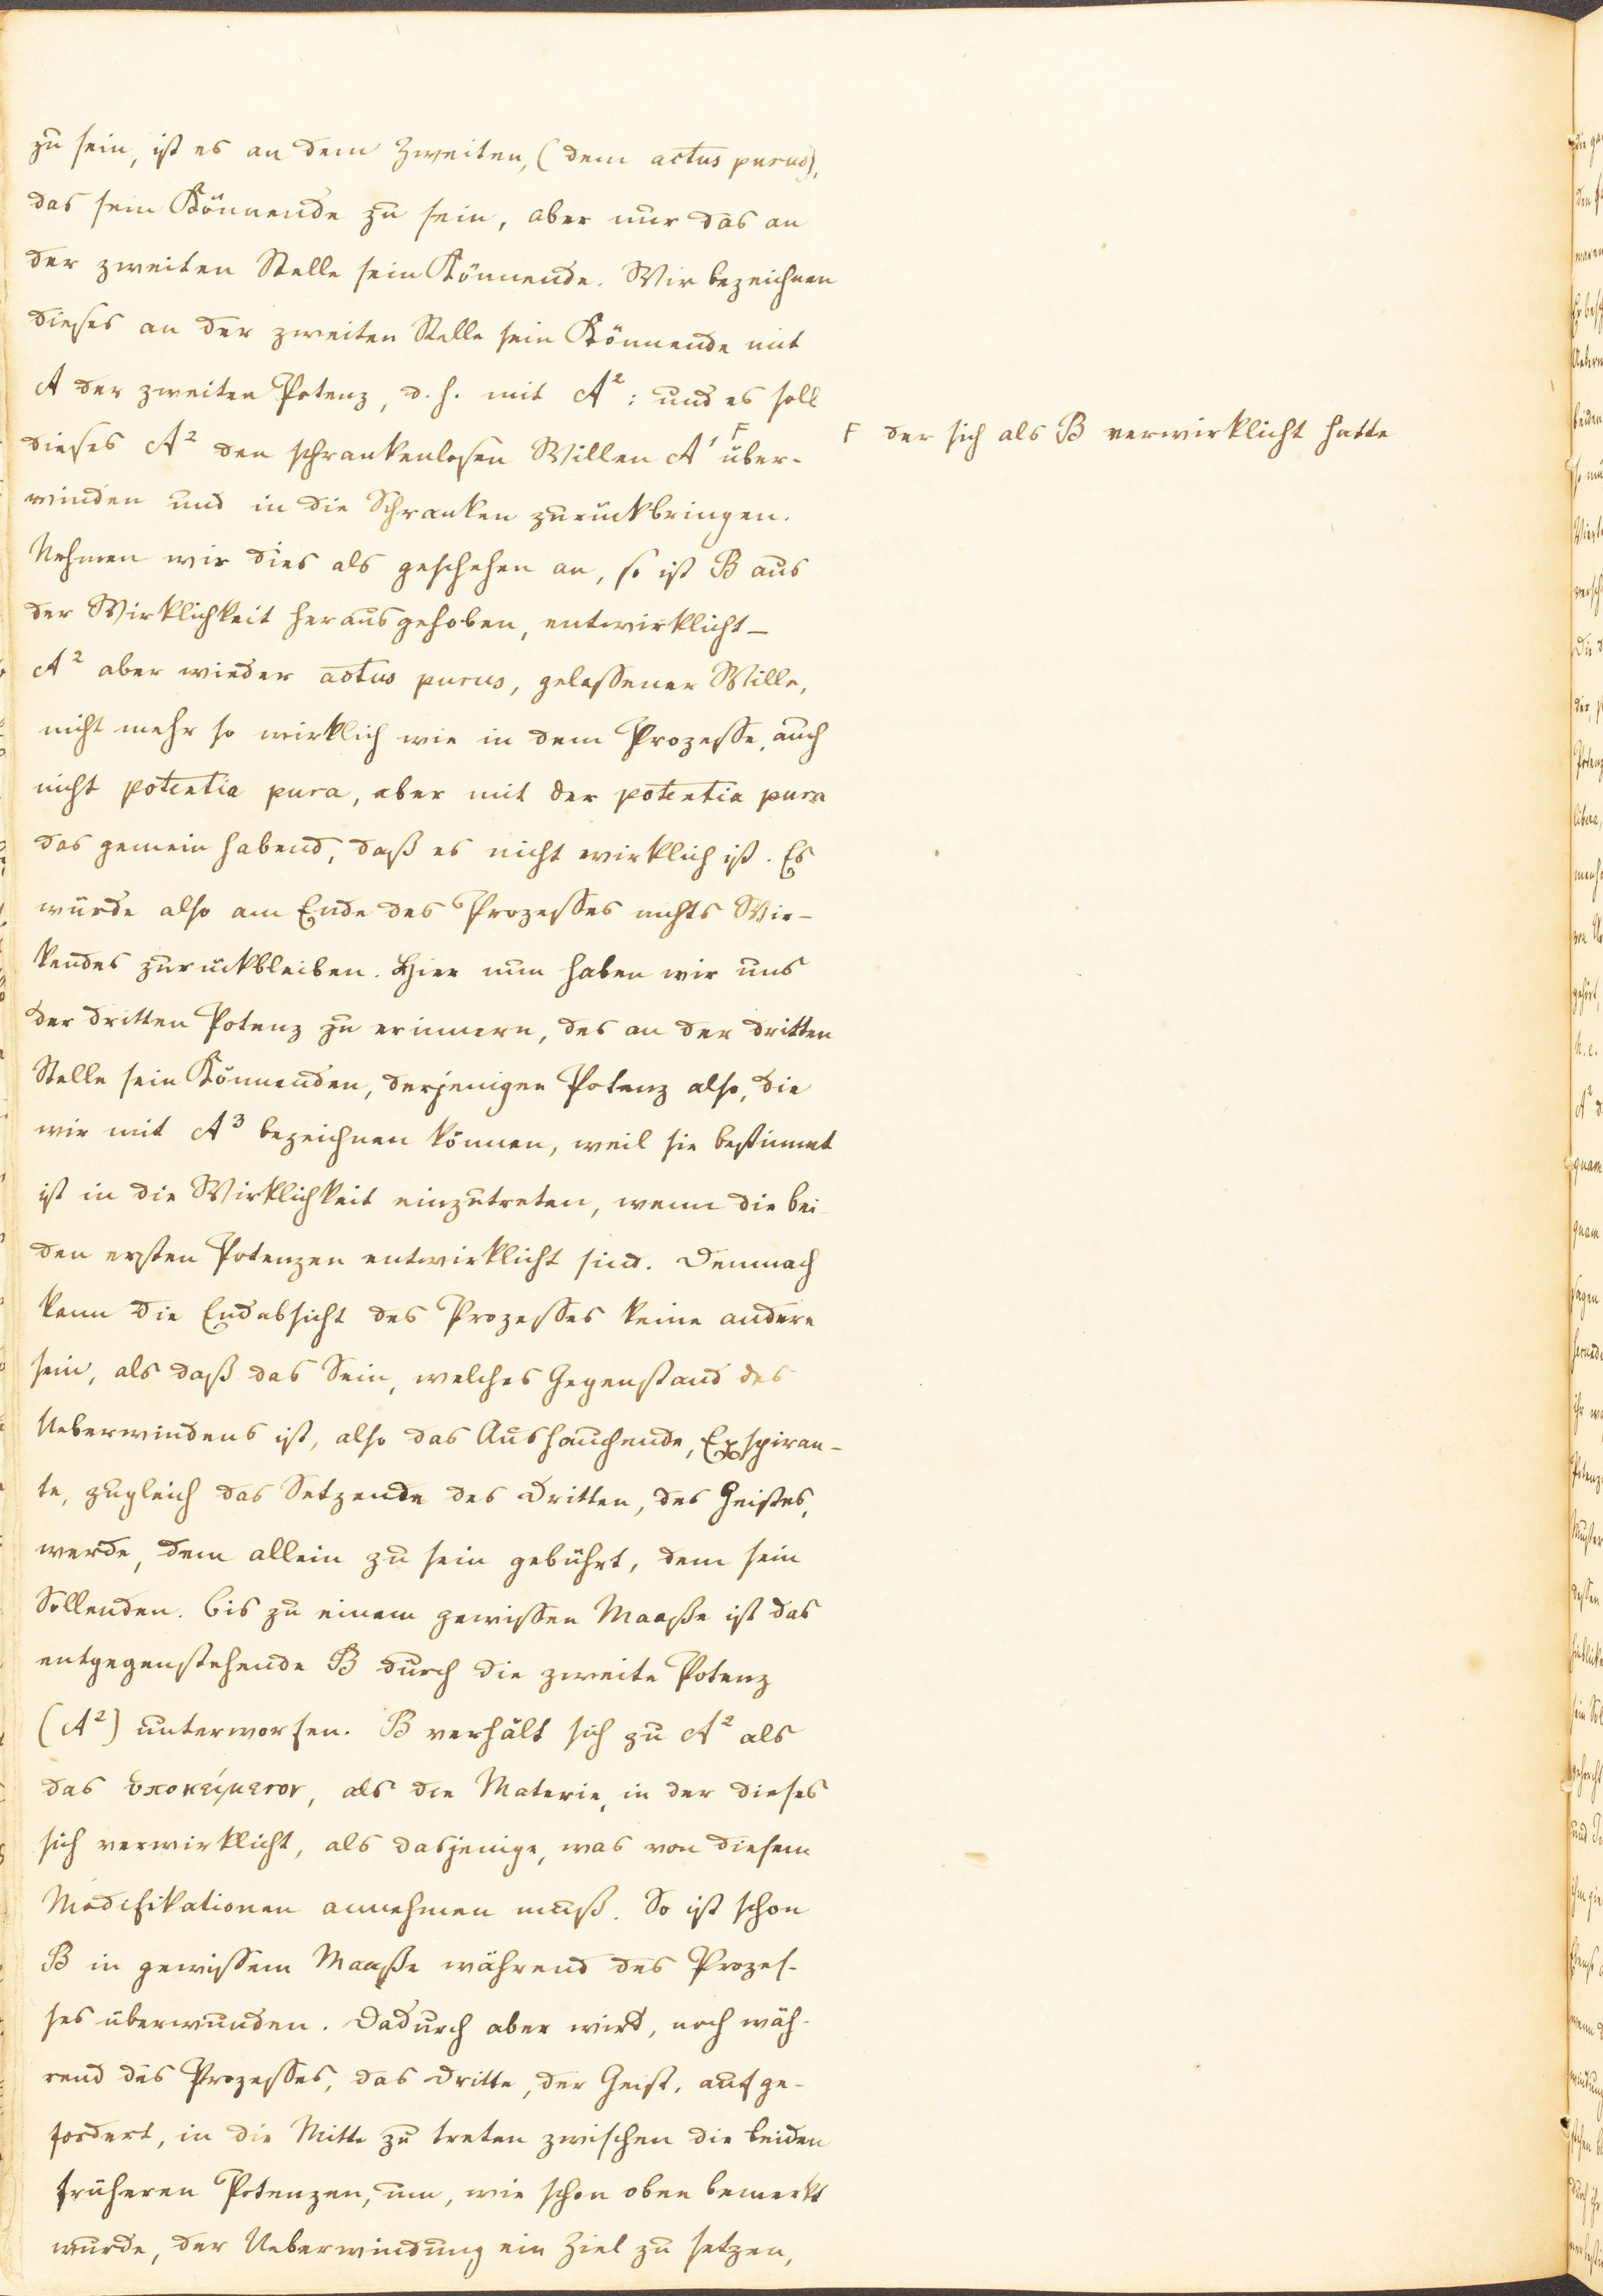 zu sein, ist es an dem Zweiten, (dem actus purus),
das sein Könnende zu sein, aber nur das an
der zweiten Stelle sein Könnende. Wir bezeichnen
dieses an der zweiten Stelle sein Könnende mit
A der zweiten Potenz, d. h. mit A²: und es soll
dieses A² den schrankenlosen Willen A¹ ꜰ über-
winden und in die Schranken zurückbringen.
Nehmen wir dies als geschehen an, so ist B aus
der Wirklichkeit herausgehoben, entwirklicht –
A² aber wieder actus purus, gelassener Wille,
nicht mehr so wirklich wie in dem Prozesse, auch
nicht potentia pura, aber mit der potentia pura
das gemein habend, daß es nicht wirklich ist. Es
würde also am Ende des Prozesses nichts Wir-
kendes zurückbleiben. Hier nun haben wir uns
der dritten Potenz zu erinnern, des an der dritten
Stelle sein Könnenden, derjenigen Potenz also, die
wir mit A³ bezeichnen können, weil sie bestimmt
ist in die Wirklichkeit einzutreten, wenn die bei-
den ersten Potenzen entwirklicht sind. Demnach
kann die Endabsicht des Prozesses keine andere
sein, als daß das Sein, welches Gegenstand des
Ueberwindens ist, also das Aushauchende, Exspiran-
te, zugleich das Setzende des Dritten, des Geistes,
werde, dem allein zu sein gebührt, dem sein
Sollenden. Bis zu einem gewissen Maaße ist das
entgegenstehende B durch die zweite Potenz
(A²) unterworfen. B verhält sich zu A² als
das ὑποκείμενον, als die Materie, in der dieses
sich verwirklicht, als dasjenige, was von diesem
Modifikationen annehmen muß. So ist schon
B in gewissem Maaße während des Prozes-
ses überwunden. Dadurch aber wird, noch wäh-
rend des Prozesses, das Dritte, der Geist, aufge-
fordert, in die Mitte zu treten zwischen die beiden
früheren Potenzen, um, wie schon oben bemerkt
wurde, der Ueberwindung ein Ziel zu setzen,
ꜰ der sich als B verwirklicht hatte